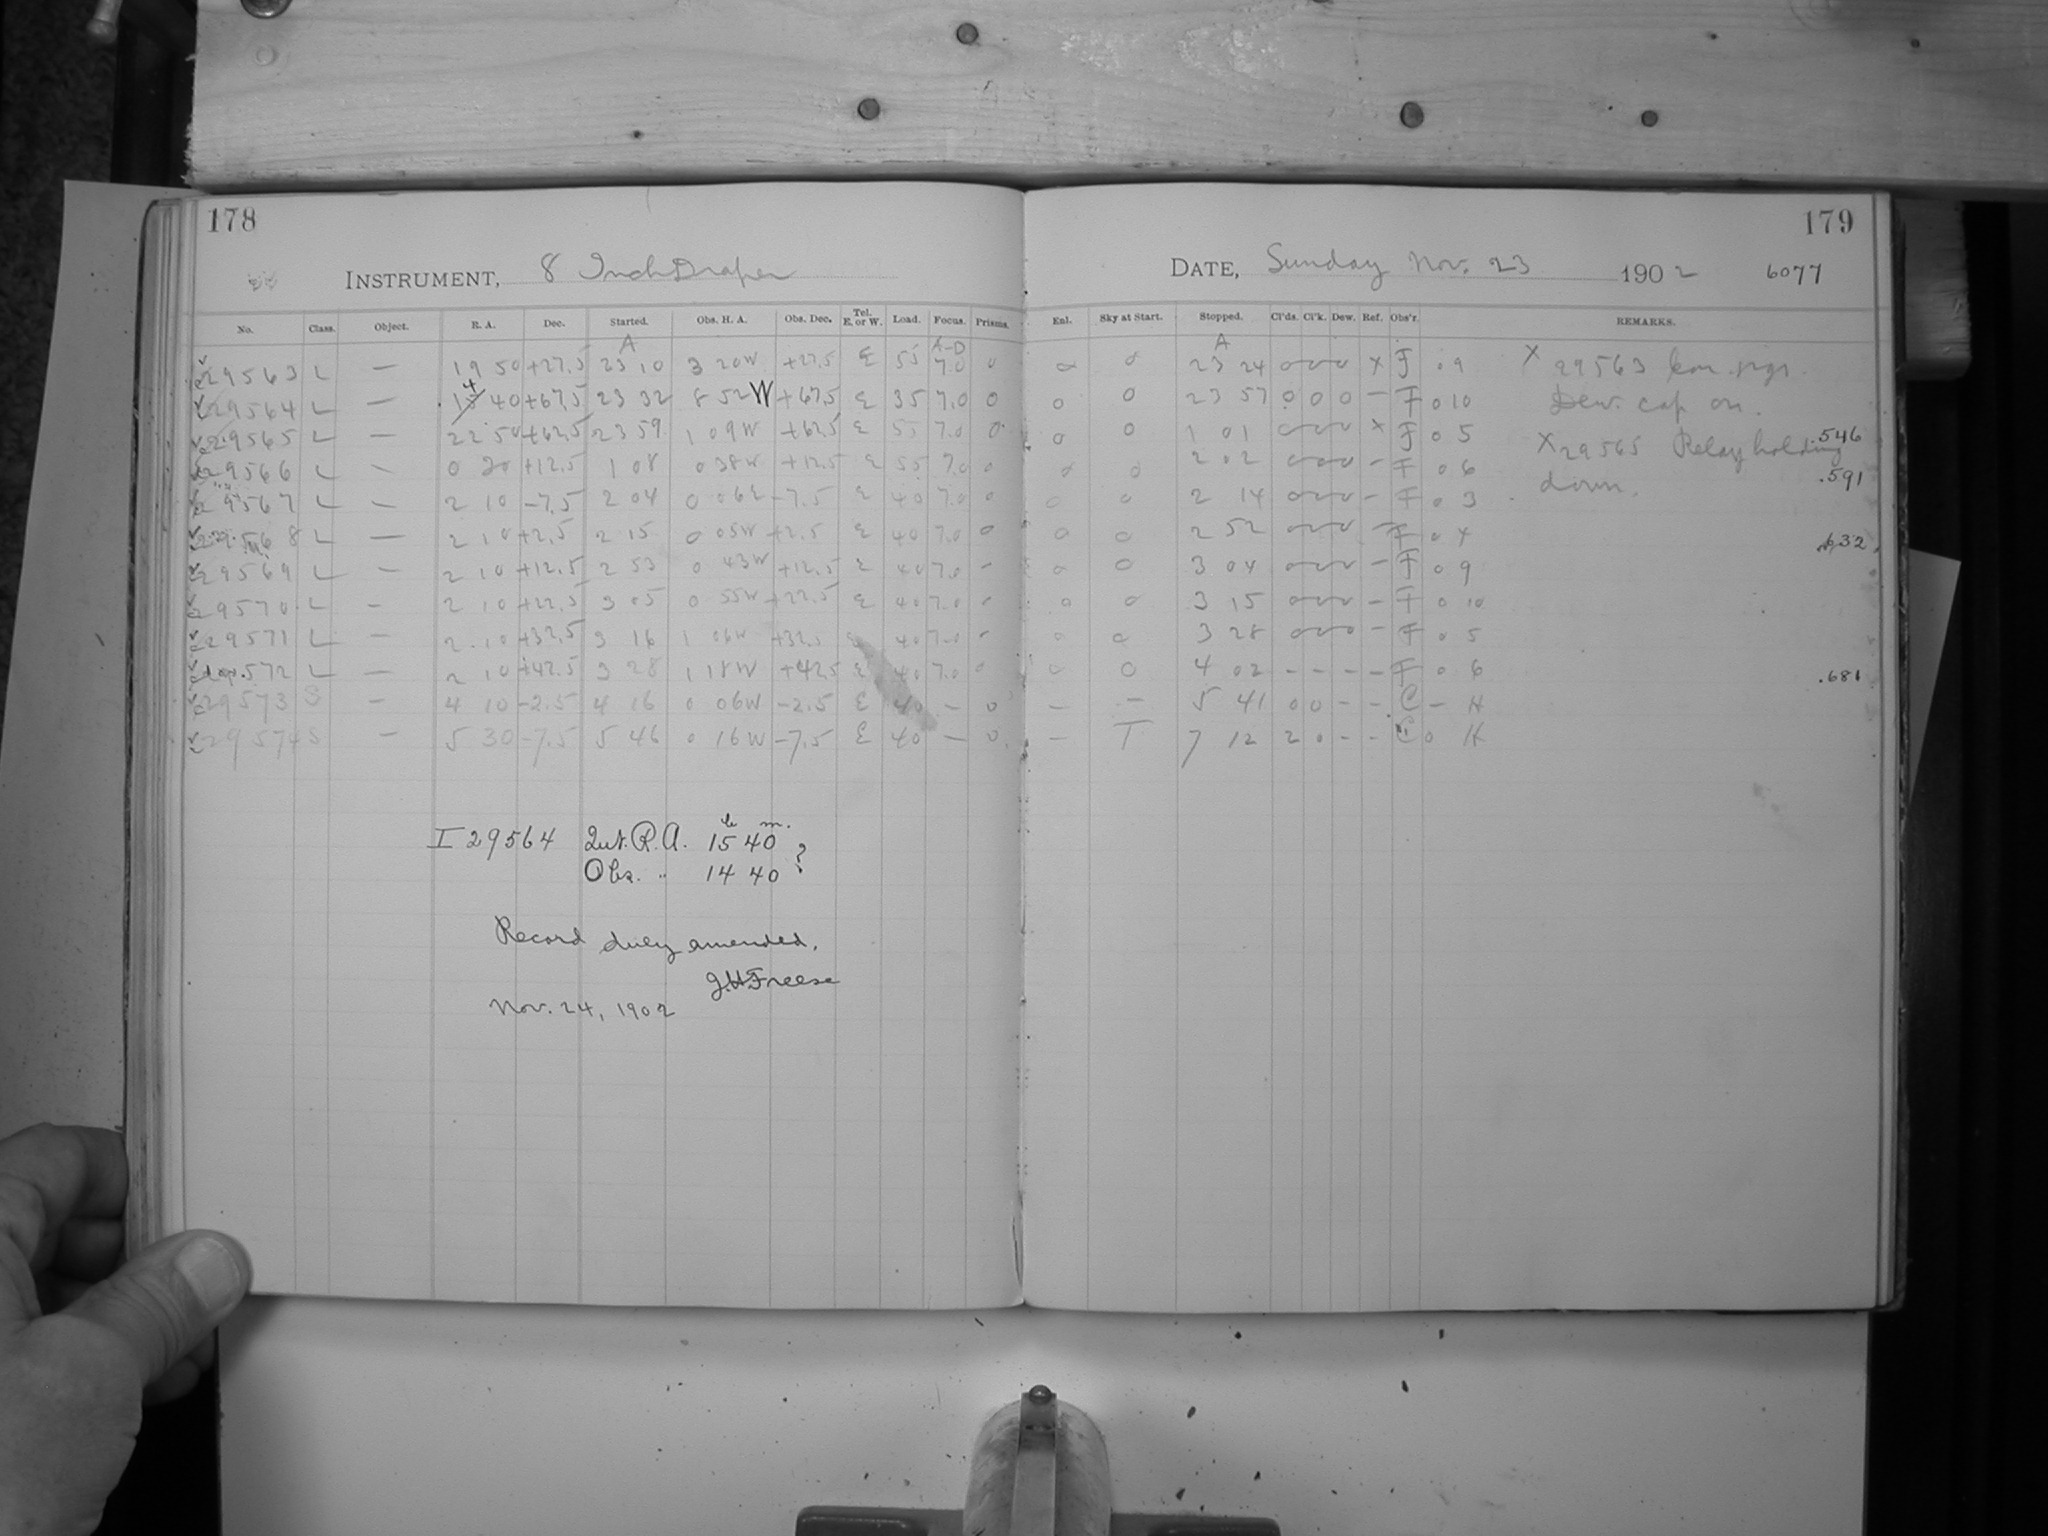 178
INSTRUMENT, 8 Inch Draper
No. Class. Object. R. A. Dec. Started. Obs. H. A. Obs. Dec. Tel. E. or W. Load. Focus. Prisms.
A A-D
29563 L — 19 50 +27.5 23 10 3 20W +27.5 E 55 7.0 0
4
29564 L — 15 40 +67.5 23 32 8 52W +67.5 E 35 7.0 0
29565 L — 22 50 +62.5 23 59 1 09W +62.5 E 55 7.0 0
29566 L — 0 30 +12.5 1 08 0 38W +12.5 E 55 7.0 0
29567 L — 2 10 -7.5 2 04 0 06E -7.5 E 40 7.0 0
29568 L — 2 10 +2.5 2 15 0 05W +2.5 E 40 7.0 0
29569 L — 2 10 +12.5 2 53 0 43W +12.5 E 40 7.0 -
29570 L — 2 10 +22.5 3 05 0 55W +22.5 E 40 7.0 -
29571 L — 2 10 +32.5 3 16 1 06W +32.5 E 40 7.0 -
572 L — 2 10 +42.5 3 28 1 18W +42.5 E 40 7.0 0
29573 S — 4 10 -2.5 4 16 0 06W -2.5 E 40 — 0
29574 S — 5 30 -7.5 5 46 0 16W -7.5 E 40 — 0
I 29564 Int. R.A. 15 h 40 m. ?
Obs. " 14 40
Record duly amended.
J.H.Freese
Nov. 24, 1902
179
DATE, Sunday Nov. 23 1902 6077
Enl. Sky at Start. Stopped. Cl'ds. Cl'k. Dew. Ref. Obs'r. REMARKS.
A
0 0 23 24 0 0 0 X F 0 9 X 29563
0 0 23 57 0 0 0 - F 0 10 Dew cap on.
0 0 1 01 0 0 0 X F 0 5 X 29565 Relay holding .546
0 0 2 02 0 0 0 - F 0 6 down. .591
0 0 2 14 0 0 0 - F 0 3
0 0 2 52 0 0 0 - F 0 4 .632
0 0 3 04 0 0 0 - F 0 9
0 0 3 15 0 0 0 - F 0 10
0 0 3 28 0 0 0 - F 0 5
0 0 4 02 - - - - F 0 6 .681
— — 5 41 0 0 - - C - H
— T 7 12 2 0 - - C 0 H